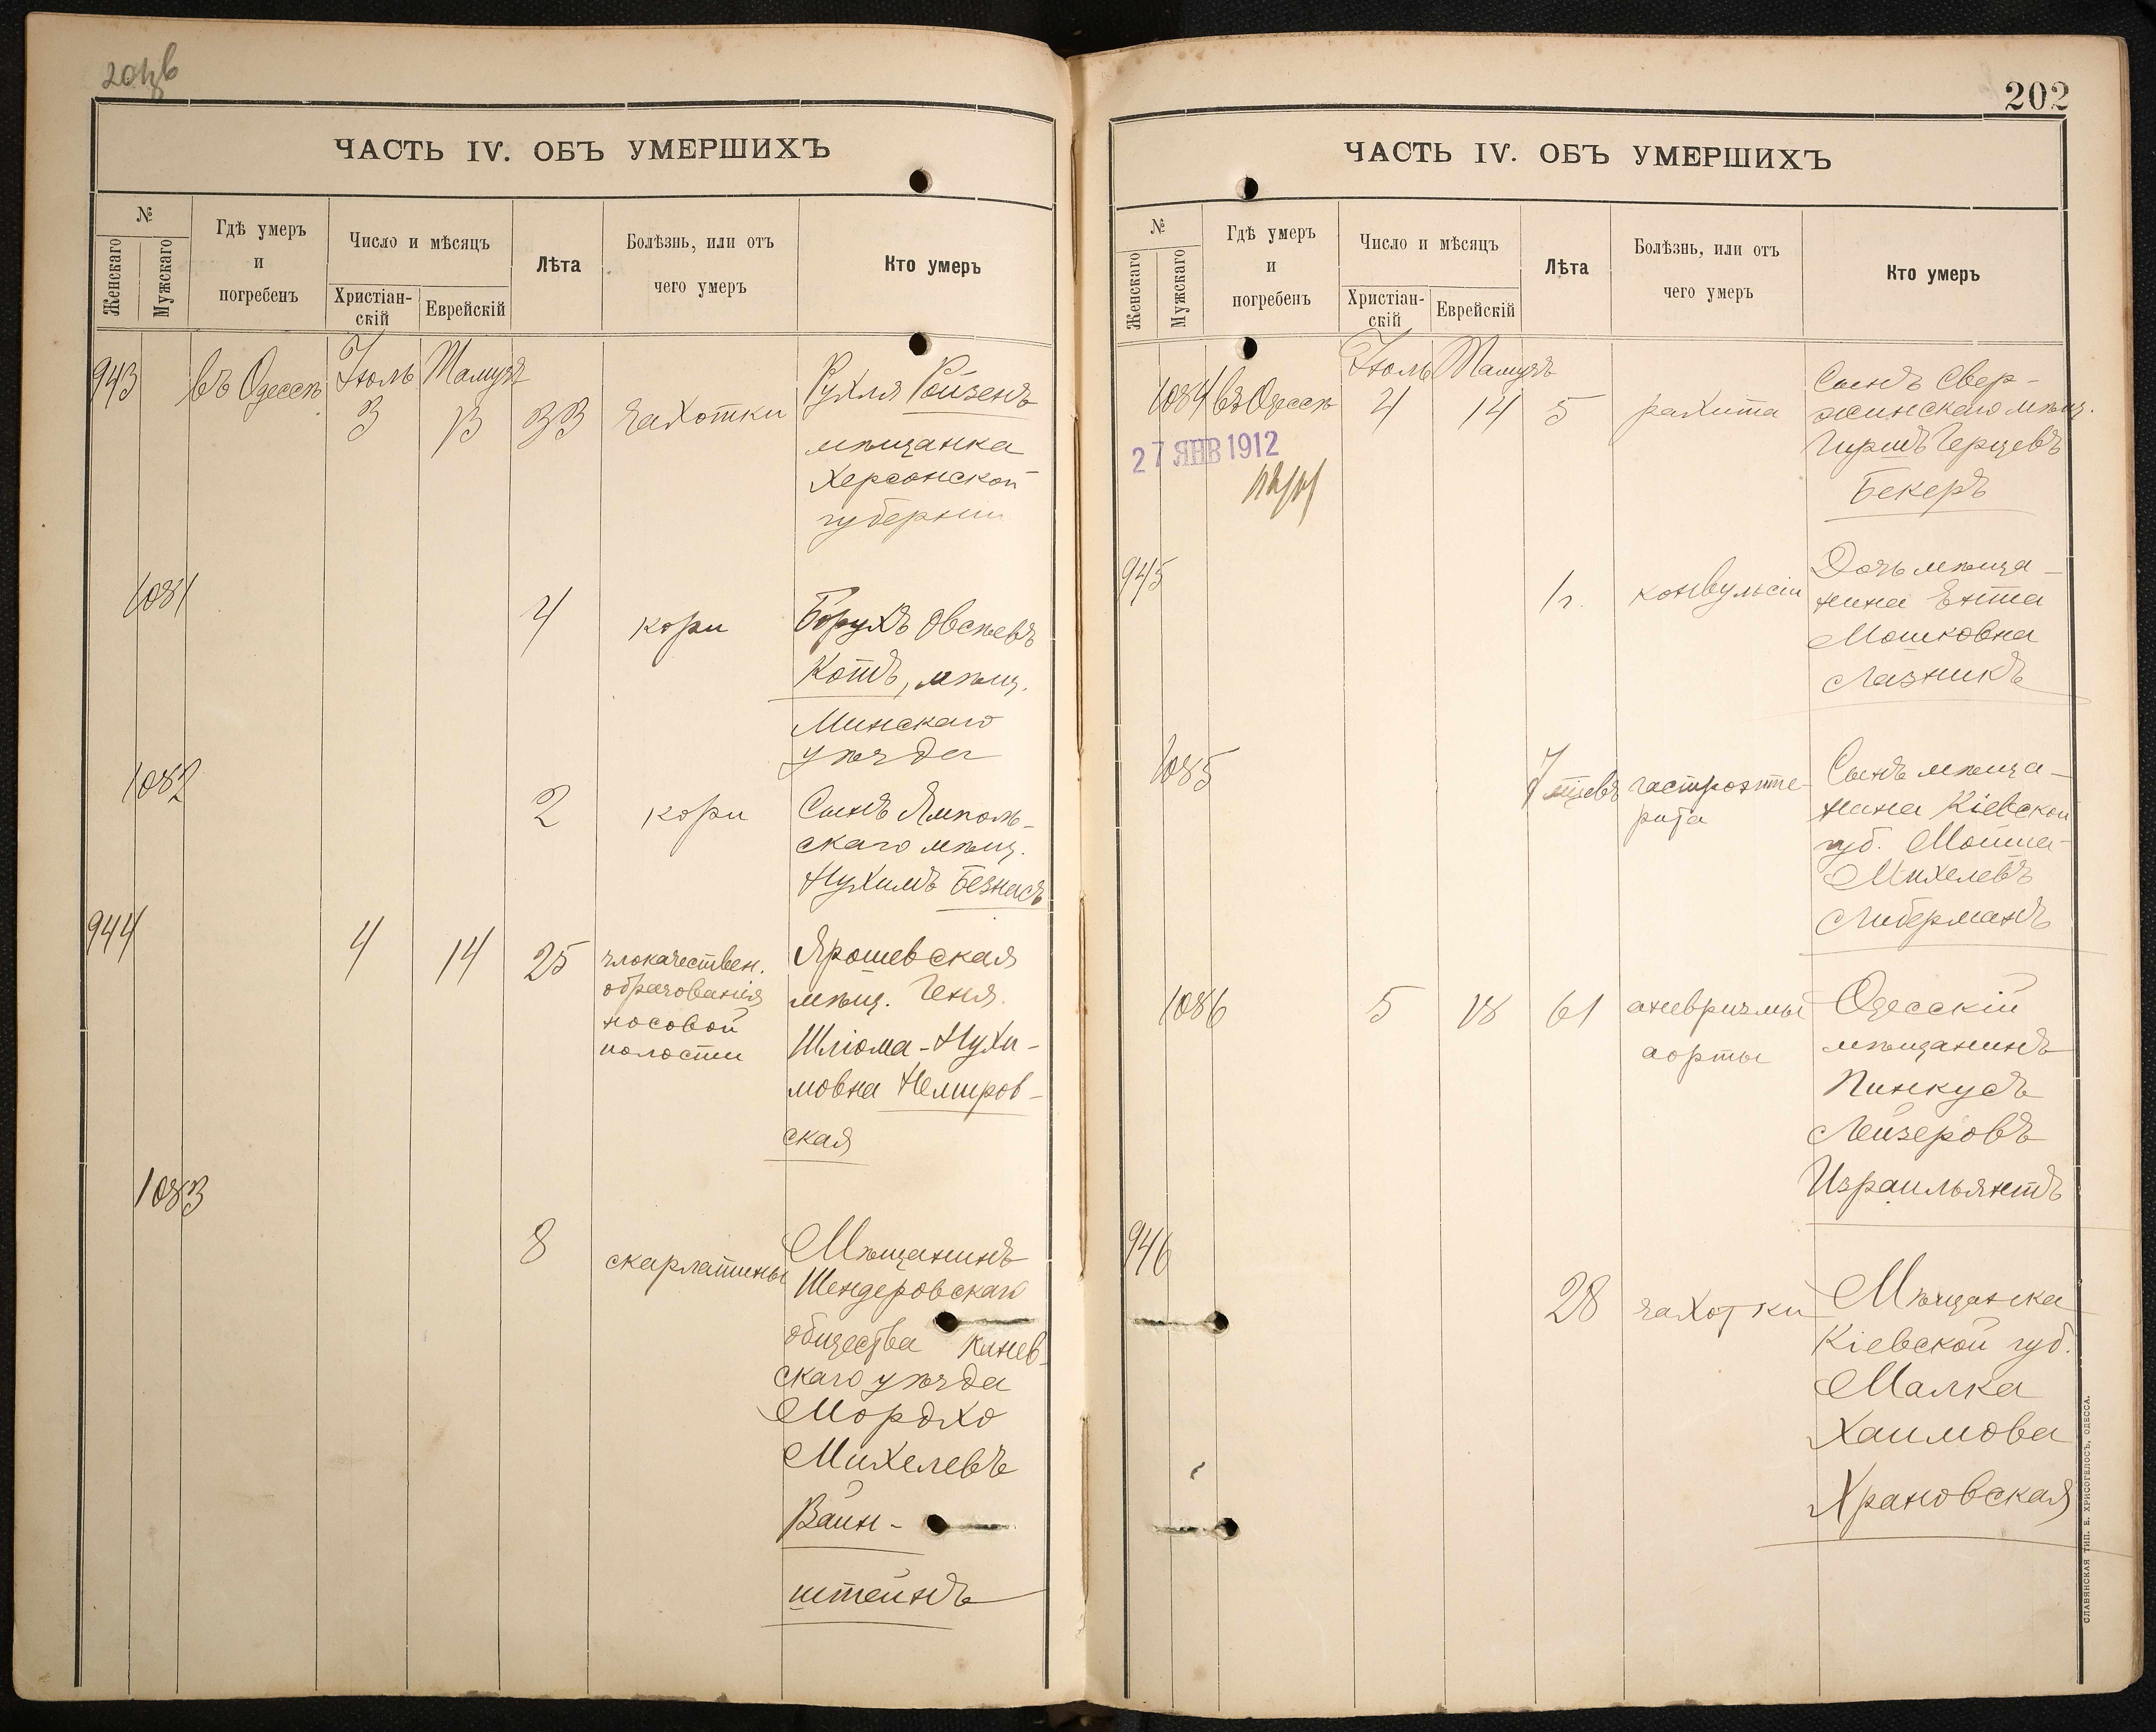 201 об
ЧАСТЬ IV. ОБЪ УМЕРШИХЪ
№
Женскаго
Мужскаго
Гдѣ умеръ
и
погребенъ
Число и мѣсяцъ
Христіан-
скій
Еврейскій
Лѣта
Болѣзнь, или отъ
чего умеръ
Кто умеръ
943 въ Одессѣ Іюль Тамузъ
3 13 33 чахотки
Рухля Ройзенъ
мѣщанка
Херсонской
губерніи
1081 4 кори
Борухъ Овсѣевъ
Котъ, мѣщ.
Минскаго
уѣзда
1082 2 кори
Сынъ Ямполь-
скаго мѣщ.
Нухимъ Безносъ
944 4 14 25
злокачествен.
образованія
носовой
полости
Ярошевская
мѣщ. Геня
Шліома-Нухи-
мовна Немиров-
ская
1083 8 скарлатины
Мѣщанинъ
Шендеровскаго
общества Канев-
скаго уѣзда
Мордхо
Михелевъ
Вайн-
штейнъ
202
ЧАСТЬ IV. ОБЪ УМЕРШИХЪ
№
Женскаго
Мужскаго
Гдѣ умеръ
и
погребенъ
Число и мѣсяцъ
Христіан-
скій
Еврейскій
Лѣта
Болѣзнь, или отъ
чего умеръ
Кто умеръ
Іюль Тамузъ
1084 въ Одессѣ 4 14 5 рахита
Сынъ Свер-
жинскаго мѣщ.
Гиршъ Герцевъ
Бекеръ
27 ЯНВ 1912
945 1 г. конвульсіи
Дочь мѣща-
нина Ента
Мошковна
Лазникъ
1085 7 мѣсяцевъ
гастроэнте-
рита
Сынъ мѣща-
нина Кіевской
губ. Мойше-
Михелевъ
Либерманъ
1086 5 15 61 аневризмы
аорты
Одесскій
мѣщанинъ
Пинкусъ
Лейзеровъ
Израильянтъ
946 28 чахотки
Мѣщанка
Кіевской губ.
Малка
Хаимова
Храновская
СЛАВЯНСКАЯ ТИП. Е. ХРИСОГЕЛОСЪ, ОДЕССА.